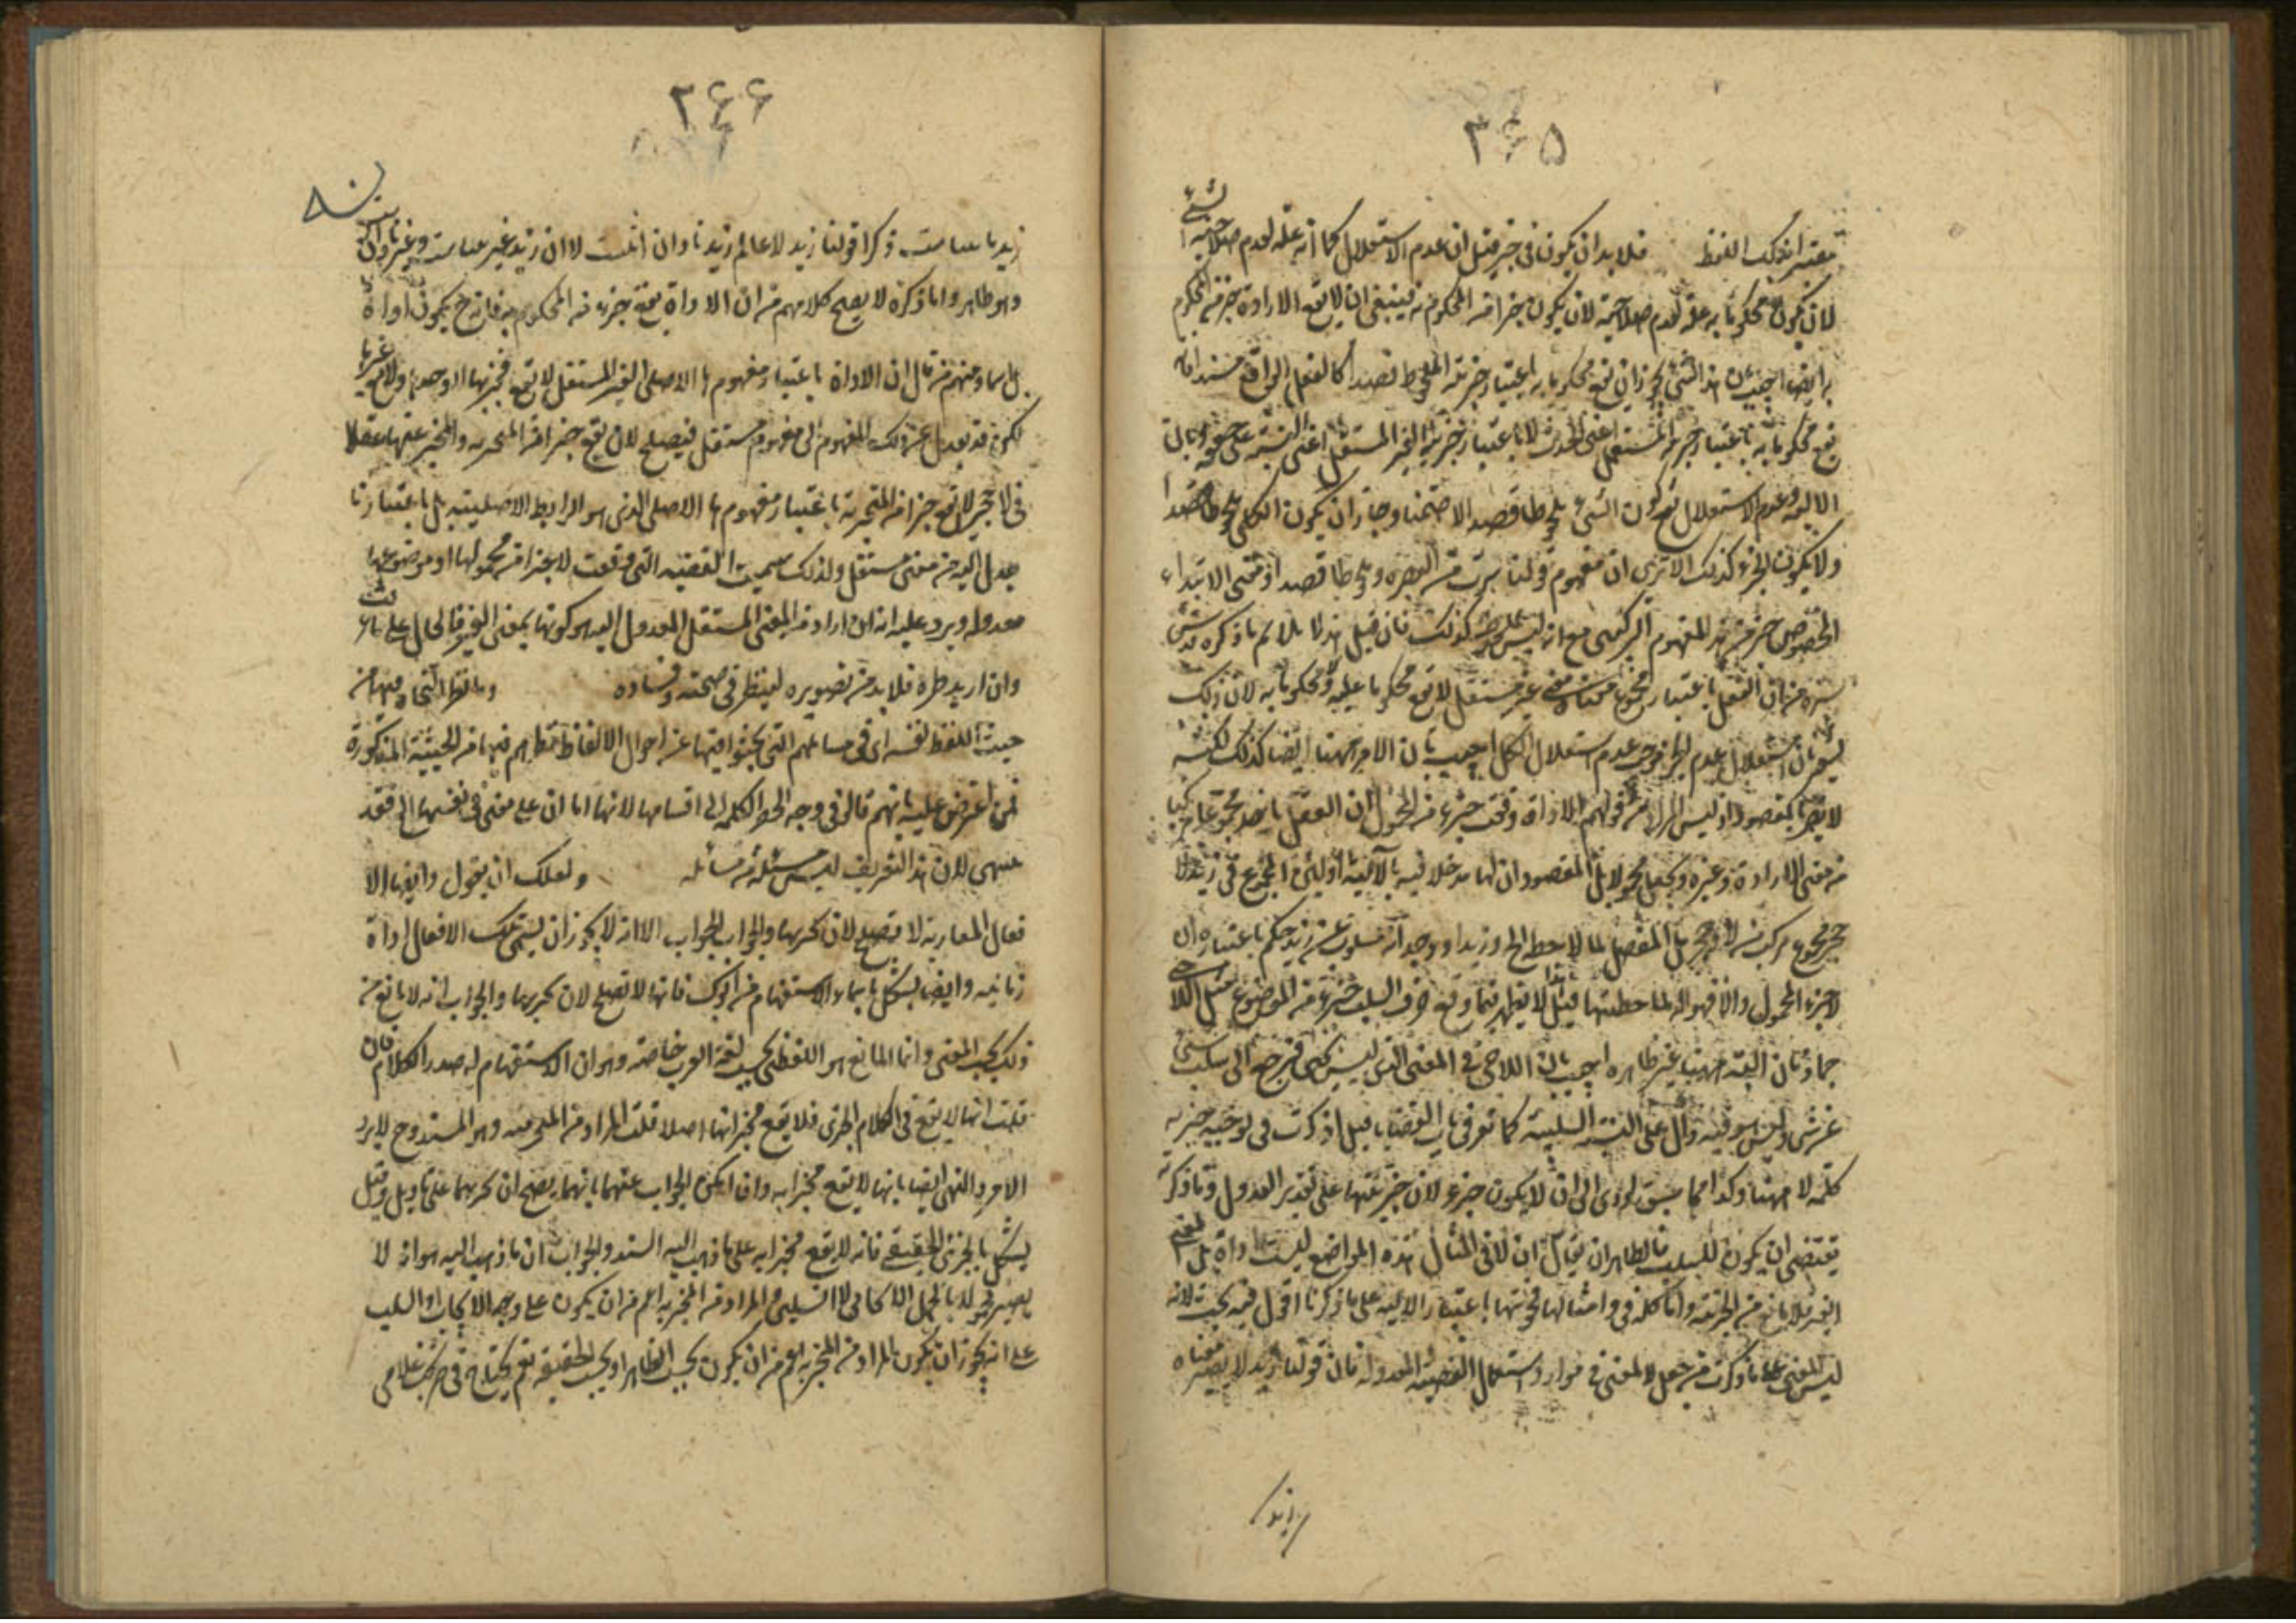 ۳۶۵
معتبر انه ذلك اللفظ فلا بد ان يكون في خبر قيل ان عدم الاستقلال كما انه علة لعدم صلاحية الشي
لان يكون محكوما به علة لعدم صلاحية لان يكون جزا من المحكوم به فينبغي ان لا يقع الاداة جزء من المحكوم
به ايضا اجيب بان هذا الشي يجوز ان يقع محكوما به باعتبار جزئه الملحوظ قصدا كالفعل الواقع مسندا فانه
يقع محكوما به باعتبار جزئه المستقل اعني الحدث لا باعتبار جزئه الغير المستقل اعني النسبة
وعدم الاستقلال هو كون الشي ملحوظا قصدا لا ضمنا وجاز ان يكون الكل ملحوظا قصدا
ولا يكون الجزء كذلك الا ترى ان مفهوم قولنا سرت من البصرة ملحوظ قصدا و معنى الابتداء
المخصوص جزء من هذا المفهوم التركيبي مع انه ليس ملحوظا كذلك فان قيل هذا لا يلائم ما ذكره
من ان الفعل باعتبار مجموع معناه غير مستقل لا يقع محكوما عليه ولا محكوما به لان ذلك
يشعر بان استقلال عدم الجزء يوجب عدم استقلال الكل اجيب بان الامر ههنا ايضا كذلك لكنه
لا يضر بالمقصود اذ ليس المراد من قولهم الاداة وقعت جزء من المحمول ان العقل ياخذ مجموعا مركبا
من معنى الاداة وغيره ويجعله محمولا بل المقصود ان لها مدخلا فيه بالآلية او ليس المجموع في زيد لا
حجر مجموع مركب من لا وحجر بل العقل لما لاحظ الحجر وزيدا ووجد انه مسلوب عن زيد حكم باعتباره ان
لا جزء المحمول والا فهو آلة لملاحظتها قيل هذا لا يظهر فيما وقع حرف السلب جزء من الموضوع مثل اللا حي
جماد فان الية ههنا غير ظاهرة اجيب بان اللا حي في المعنى الذي ليس بحي فيرجع الى سلب شي
عن شي وليس هو فيه دال على النسبة السلبية كما تعرف في باب القضايا قيل اذ كرت في توجيه جزئية
كلمة لا ههنا وكذا مما سبق يؤدي الى ان لا يكون جزء لان جزئيتها على تقدير العدول وما ذكرته
يقتضي ان يكون للسلب فالظاهر ان يقال ان لا في امثال هذه المواضع ليست اداة بل بمعنى
الغير فلا مانع من الجزئية واما كلمة في وامثالها فجزئيتها باعتبار الالية على ما ذكرنا اقول فيه بحث لانه
ليس المعنى على ما ذكرت من جعل لا لمعنى في موارد استعمال القضية المعدولة فان قولنا زيد لا بصير معناه
زيد نا
۳۶۶
زيد نا بينا ست وكذا قولنا زيد لا عالم زيد نادان است لا ان زيد غير بينا ست وغير دان
وهو ظاهر واما ذكره لا يصح كلامهم من ان الاداة يقع جزء من المحكوم به فانه ح يكون اداة
بل اسما ومنهم من قال ان الاداة باعتبار مفهومها الاصلي الغير المستقل لا يقع مخبرا بها لا وحدها ولا مع غيرها
لكن قد يعدل عن ذلك المفهوم الى مفهوم مستقل فيصلح لان يقع جزا من المخبر به والمخبر عنه مثلا
في لا حجر لا يقع جزا من المخبر به باعتبار مفهومها الاصلي الذي هو الرابط الاصلية بل باعتبار ما
عدل اليه من معنى مستقل ولذلك سميت القضية التي وقعت لا جزا من محمولها او موضوعها
معدولة ويرد عليه انه ان اراد من المعنى المستقل المعدول اليه هو كونها بمعنى الغير فالحال على ما عرفت
وان اريد غيره فلا بد من تصويره لينظر في صحته وفساده وما نظر النحاة فيها من
حيث اللفظ نفسه اي في مسائلهم التي يبحثوا فيها عن احوال الالفاظ نظرهم فيها من الحيثية المذكورة
فمن اعترض عليه بانهم قالوا في وجه حصر الكلمة الى اقسامها لانها اما ان تدل على معنى في نفسها الخ فقد
سهى لان هذا التعريف ليس مسئلة من مسائله ولعلك ان يقول وايضا الا
فعال المقاربة لا تصلح لان تخبر بها والجواب الجواب الا انه لا يجوز ان يسمى تلك الافعال اداة
زمانية وايضا يشكل باسماء الاستفهام من ابوك فانها لا تصلح لان تخبر بها والجواب انه لا مانع من
ذلك بحسب المعنى وانما المانع هو اللفظي بحسب لغة العرب خاصة وهو ان الاستفهام له صدر الكلام فان
قلت انها لا يقع في الكلام الخبري فلا يقع مخبرا بها اصلا قلت المراد من المخبر به هو المسند وح لا يرد
الامر والنهي ايضا بانها لا يقع مخبرا به وان امكن الجواب عنهما بانهما يصح ان تخبر بهما على تاويل وقيل
يشكل بالجزئي الحقيقي فانه لا يقع مخبرا به على ما ذهب اليه السيد والجواب ان ما ذهب اليه هو انه لا
يصير محمولا بالحمل الايجابي لا السلبي والمراد من المخبر به اعم من ان يكون على وجه الايجاب او السلب
على انه يجوز ان يكون المراد من المخبر به اعم من ان يكون بحسب الظاهر او بحسب الحقيقة نعم يحتاج في